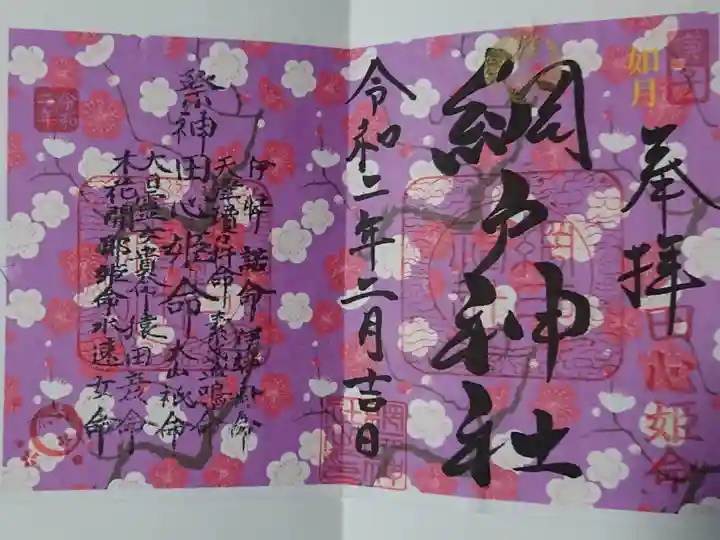 庚子
如月
奉拝
田心姫命
網戸神社
令和二年二月吉日
祭神田心姫命
伊弉諾命伊弉冊命
大山祇命
大己貴命猿田彦命
木花開耶姫命水速女命
令和二年